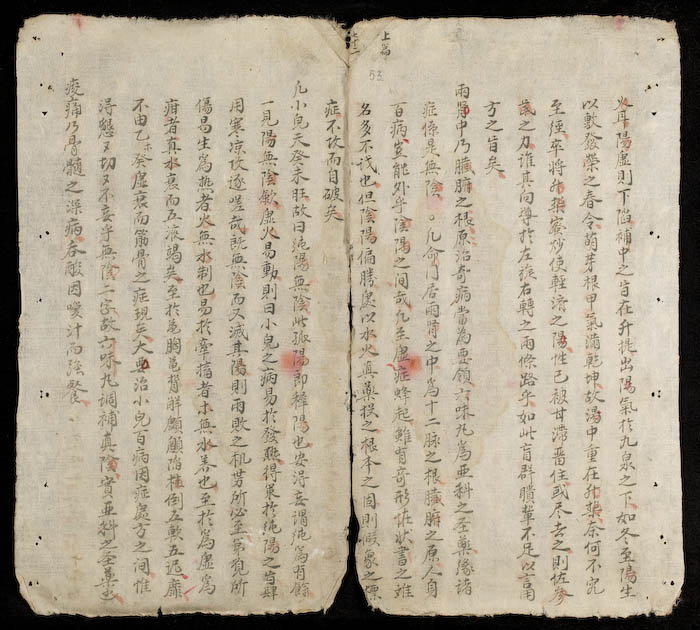 七十二
上篇
53
以敷發榮之春令萌芽根甲氣滿乾坤故湯中重在升柴奈何不究
至經卒將升柴蜜炒使輕清之陽性已被甘滯留住或尽去之則佐參
芪之力誰其向導於左旋右轉之兩條路乎如此盲群聵輩不足以言用
方之旨矣
兩腎中乃臟腑之根原治奇病當為要領六味九為亞科之圣藥緣諸
症條是無陰。凡命門居兩腎之中為十二脉之根臟腑之原人身
百病豈能外乎陰陽之間哉凡至虛症蜂起雖有奇形怪狀書之難
名多不識也但陰陽偏勝處以水火真藥投之根本之固則假象之標
症不攻而自破矣
凢小兒天癸未旺故曰純陽無陰此孤陽即稚陽也安得妄謂純為有餘
一見陽無陰斂虛火易動則曰小兒之病易於發熱得罪於純陽之旨肆
用寒凉攻逐嗟哉既無陰而又滅其陽則兩敗之机勞所必至第狍所
傷易生為熱者火無水制也易於牽搐者木無水養也至於為虛為
疳者真水衰而五液竭矣至於龜胸龜背解顱顖陷植倒五軟五迟靡
不由乙木癸虛衰而筋骨之症現矣大要治小兒百病因症處方之間惟
得懇又切又不妄乎無陰二字故六味九調補真陰實亞科之圣藥也
痠痛乃骨髓之深病吞酸因嗳汁而強餐